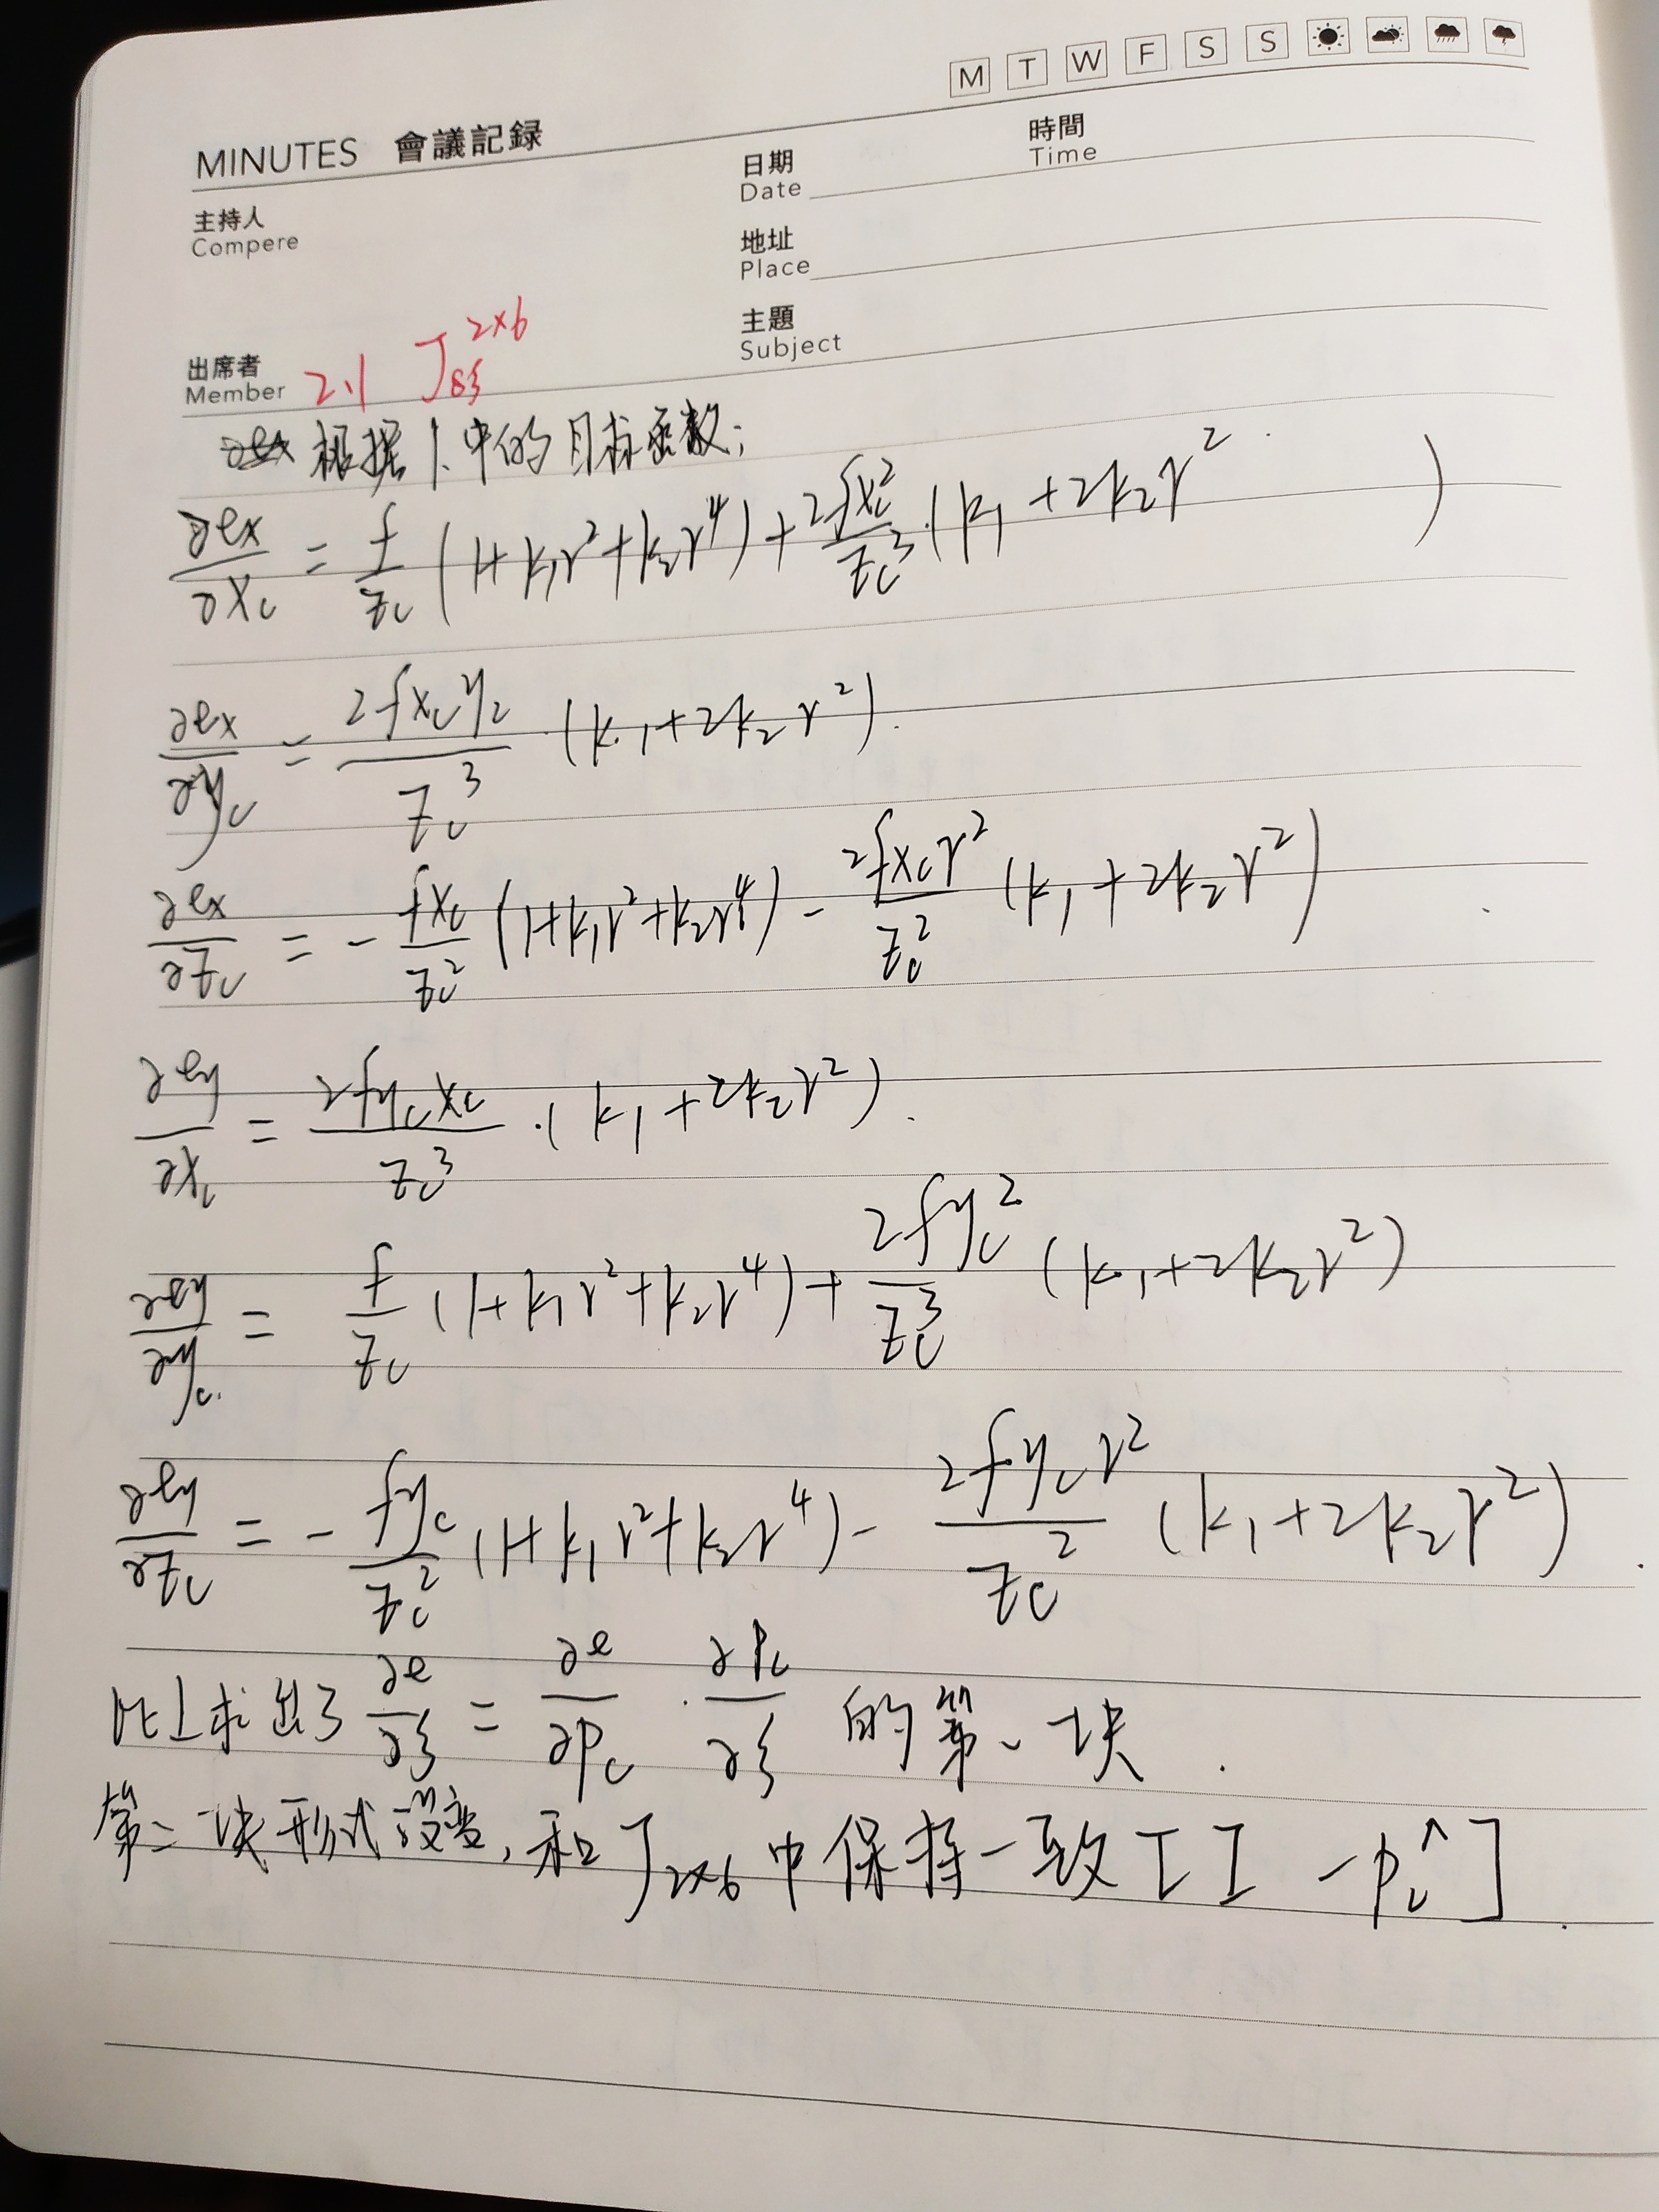 MINUTES 會議記録 日期 Date 時間 Time M T W F S S
主持人 Compere 地址 Place
出席者 Member 主題 Subject
2.1 J_{δξ} 2×6
根据 1. 中的 函数:
∂ex/∂Xc = f/Zc (1+k1r²+k2r⁴) + 2fxc²/Zc³ · (k1+2k2r²)
∂ex/∂yc = 2fxcyc/Zc³ · (k1+2k2r²).
∂ex/∂Zc = - fxc/Zc² (1+k1r²+k2r⁴) - 2fxcr²/Zc² (k1+2k2r²).
∂ey/∂Xc = 2fycxc/Zc³ · (k1+2k2r²).
∂ey/∂yc = f/Zc (1+k1r²+k2r⁴) + 2fyc²/Zc³ (k1+2k2r²)
∂ey/∂Zc = - fyc/Zc² (1+k1r²+k2r⁴) - 2fycr²/Zc² (k1+2k2r²).
此上求出了 ∂e/∂ξ = ∂e/∂Pc · ∂Pc/∂ξ 的第一块.
第二块形式 , 和 J2×6 中保持一致了 [I -Pc^]